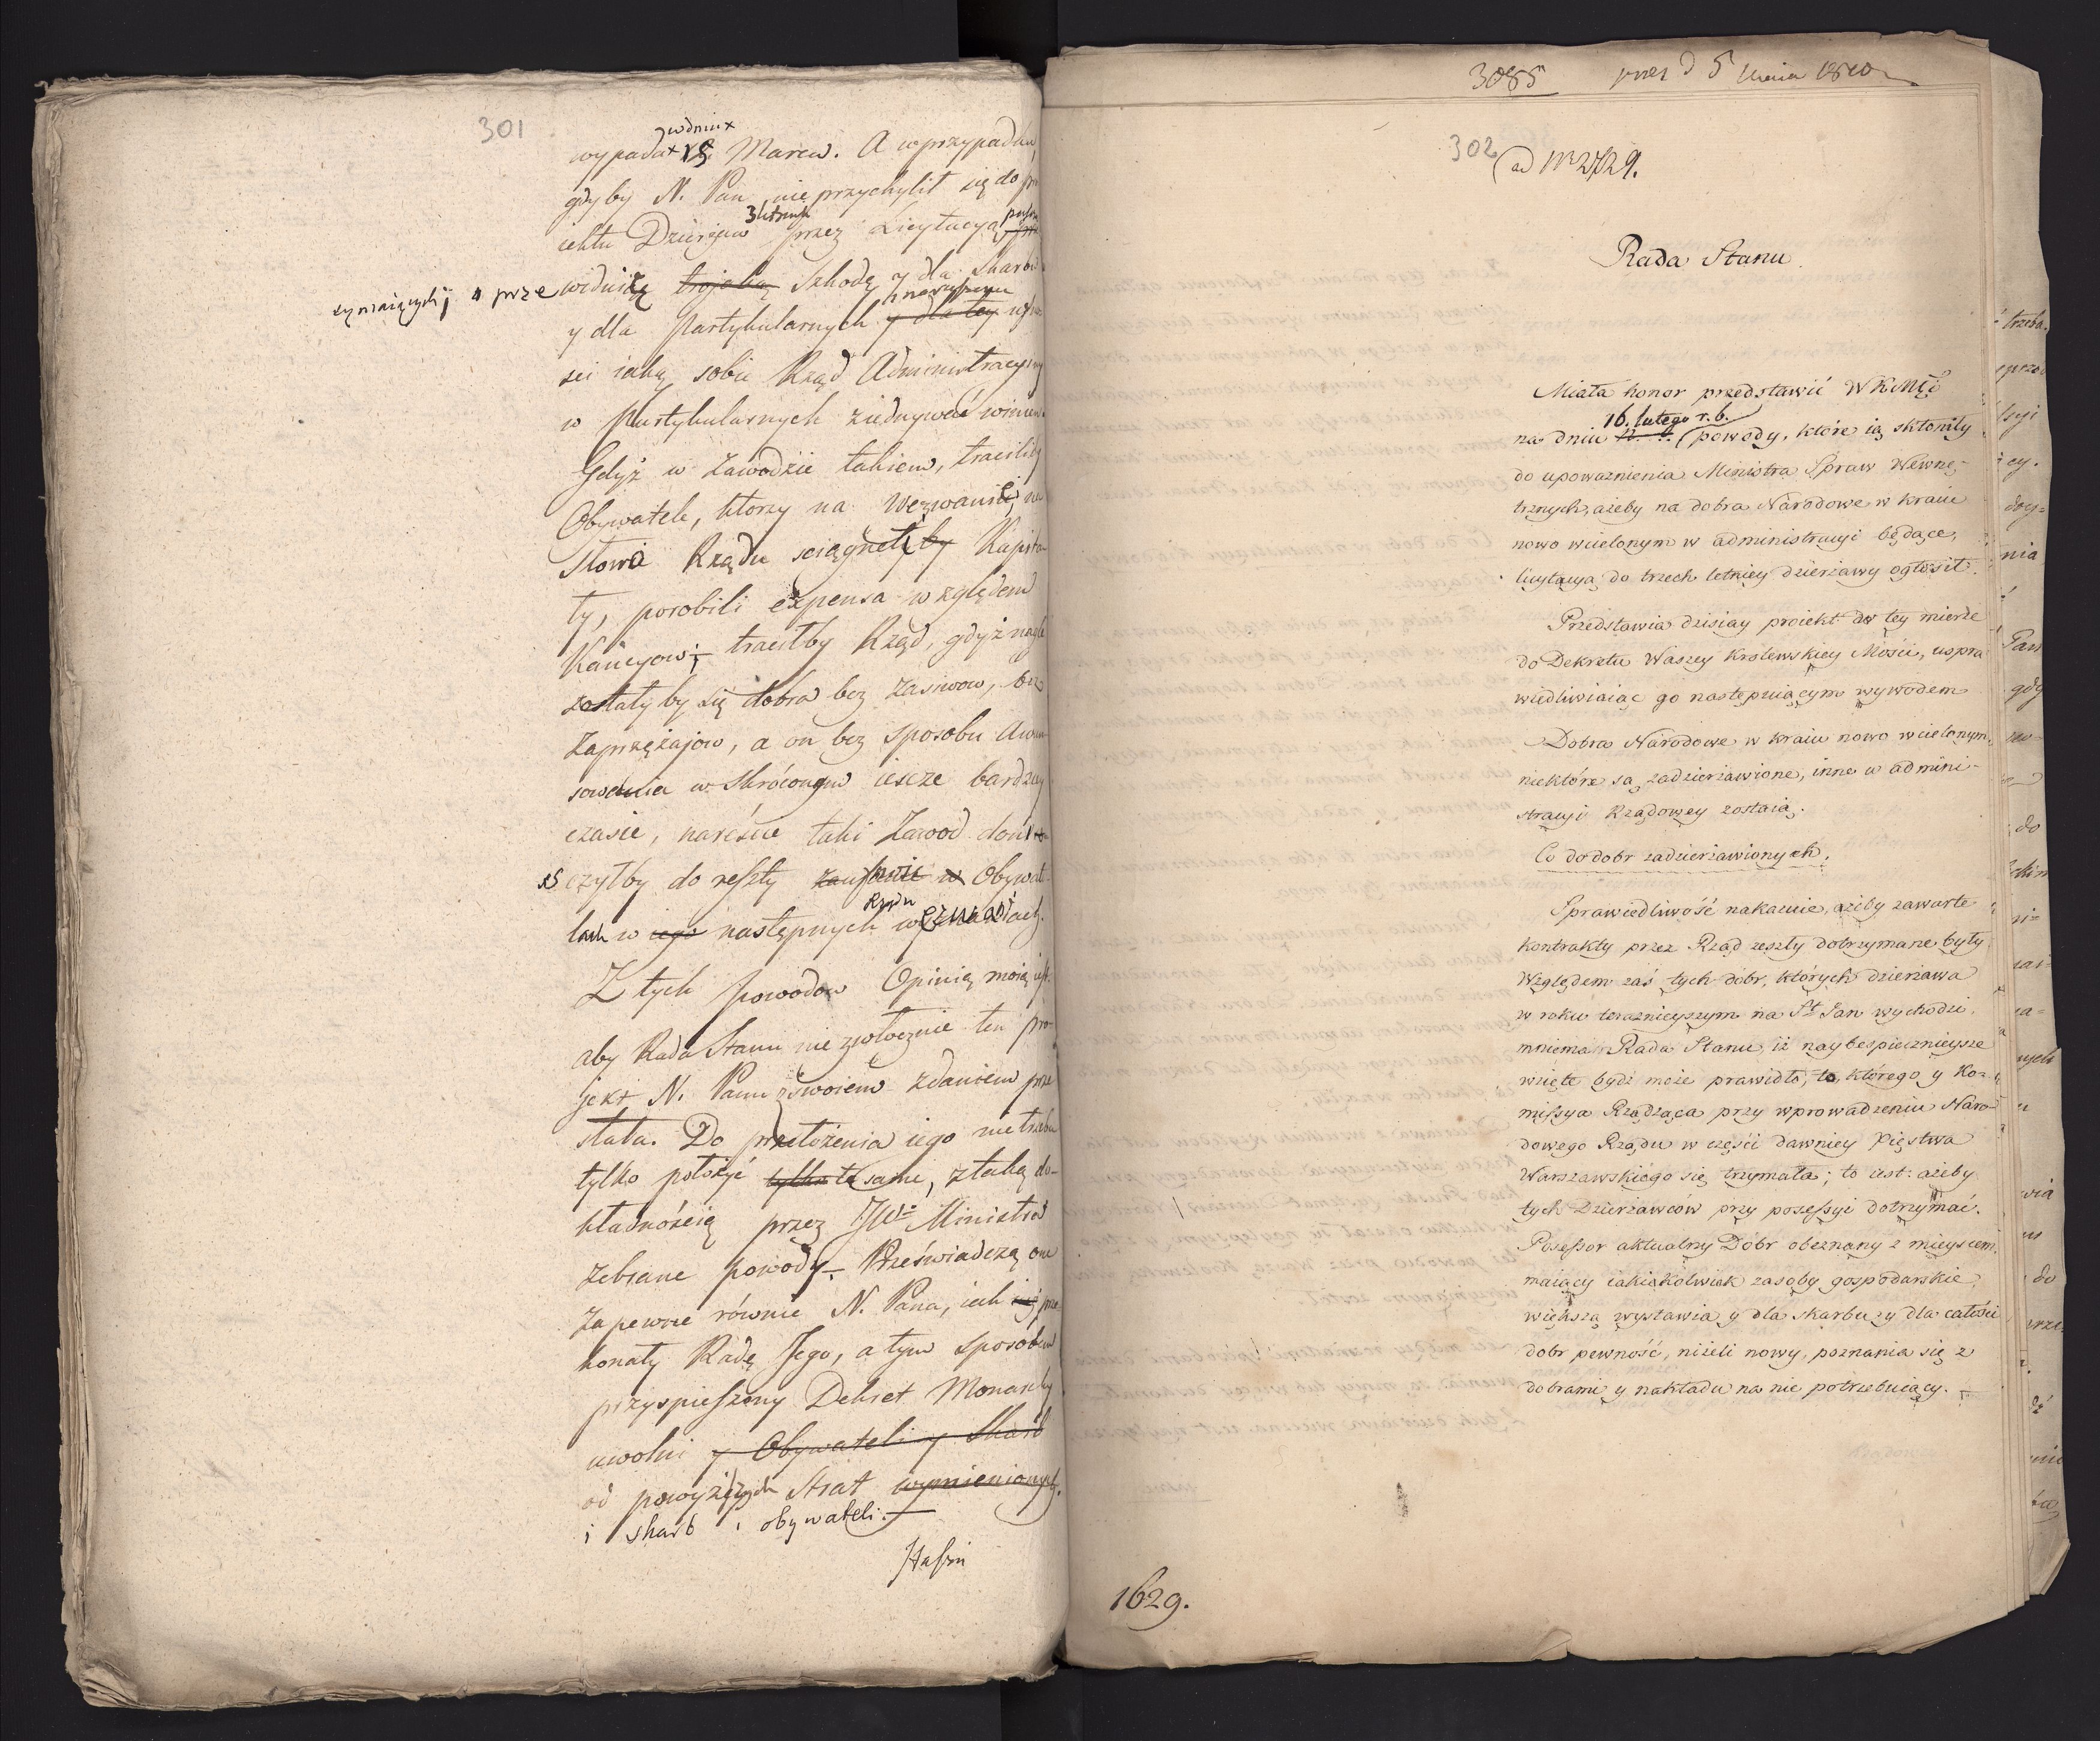 301
w dniu
wypada 15. Marca. A w przypadku,
gdyby N. Pan nie przychylił się do
iektu Dzierżaw 3 letnich przez Licytacyą
zymaiących, prze widuię trojaką Szkodę y dla Skarbu
y dla Partykularnych y dla tey
sci iaką sobie Rząd Administracyiny
w Partykularnych ziednywać winien.
Gdyż w Zawodzie takiem, traciliby
Obywatele, ktorzy na Wezwanie, na
Słowo Rządu sciągnęli by Kapita
ły, porobili expensa względem
Kaucyow; traciłby Rząd, gdyż nagle
zostały by się dobra bez zasiewow, bez
Zaprzężajow, a on bez sposobu
sowania w skróconym iescze bardziey
czasie, nareście taki Zawod
czyłby do reszty zaufanie w Obywat
lach w iego następnych Rządu w
Z tych powodow Opinią moią iest
aby Rada Stanu niezwłocznie ten pro-
jekt N. Panu z swoiem zdaniem prze
słała. Do przełożenia iego nietrzeba
tylko położyć tylko te same, z taką do-
kładnością przez JW. Ministra
zebrane powody. Przeświadczą one
zapewne równie N. Pana, iak się prze
konały Radę Jego, a tym sposobem
przyspieszony Dekret Monarchy
uwolni y Obywateli y Skarb
od powyższych Strat wymienionych.
i skarb i obywateli.
3085 5 1810
302
ad Nr 2729.
Rada Stanu
Miała honor przedstawić WKMći
16. lutego r. b.
na dniu powody, które ią skłoniły
do upoważnienia Ministra Spraw Wewnę-
trznych, ażeby na dobra Narodowe w kraiu
nowo wcielonym w administracyi będące,
licytacyą do trzech letniey dzierżawy ogłosił.
Przedstawia dzisiay proiekt w tey mierze
do Dekretu Waszey Królewskiey Mości, uspra
wiedliwiaiąc go następuiącym wywodem
Dobra Narodowe w kraiu nowo wcielonym,
niektóre są zadzierżawione, inne w admini-
stracyi Rządowey zostaią.
Co do dobr zadzierżawionych.
Sprawiedliwość nakazuie, ażeby zawarte
kontrakty przez Rząd zeszły dotrzymane były
Względem zaś tych dobr, których dzierżawa
w roku teraznieyszym na St Jan wychodzi,
mniema Rada Stanu, iż naybespiecznieysze
wzięte bydź może prawidło, to, którego y Ko-
missya Rządząca przy wprowadzeniu Naro-
dowego Rządu w części dawniey Xięstwa
Warszawskiego się trzymała; to iest: ażeby
tych Dzierżawców przy posessyi dotrzymać.
Posessor aktualny Dóbr obeznany z mieyscem,
maiący iakieżkolwiek zasoby gospodarskie,
większą wystawia y dla skarbu y dla całości
dobr pewność, niżeli nowy, poznania się z
dobrami y nakładu na nie potrzebuiący.
1629.